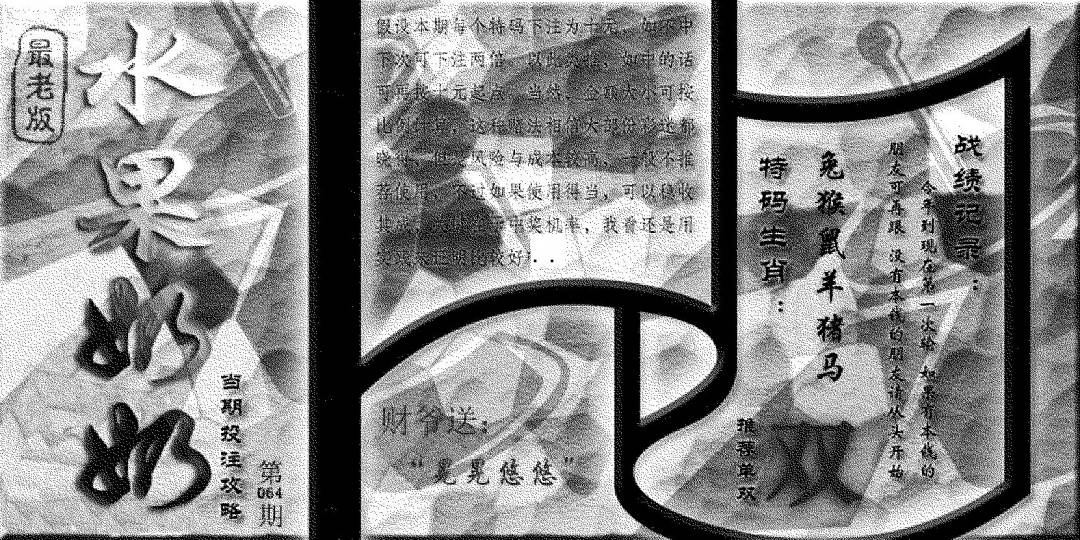 最老版
水果奶奶
当期投注攻略
第
064
期
假设本期每个特码下注为十元，如不中
下次可下注两倍，以此类推，如中的话
可再按十元起点，当然，金额大小可按
比例，这种赌法相信大部份彩迷都
晓得，但是风险与成本较高，一般不推
荐使用，不过如果使用得当，可以稳收
其成，中奖机率，我看还是用
比较好！..
财爷送：
“晃晃悠悠”
战绩记录：
今年到现在第一次输 如果有本钱的
朋友可再跟 没有本钱的朋友请从头开始
兔猴鼠羊猪马
特码生肖：
推荐单双
双